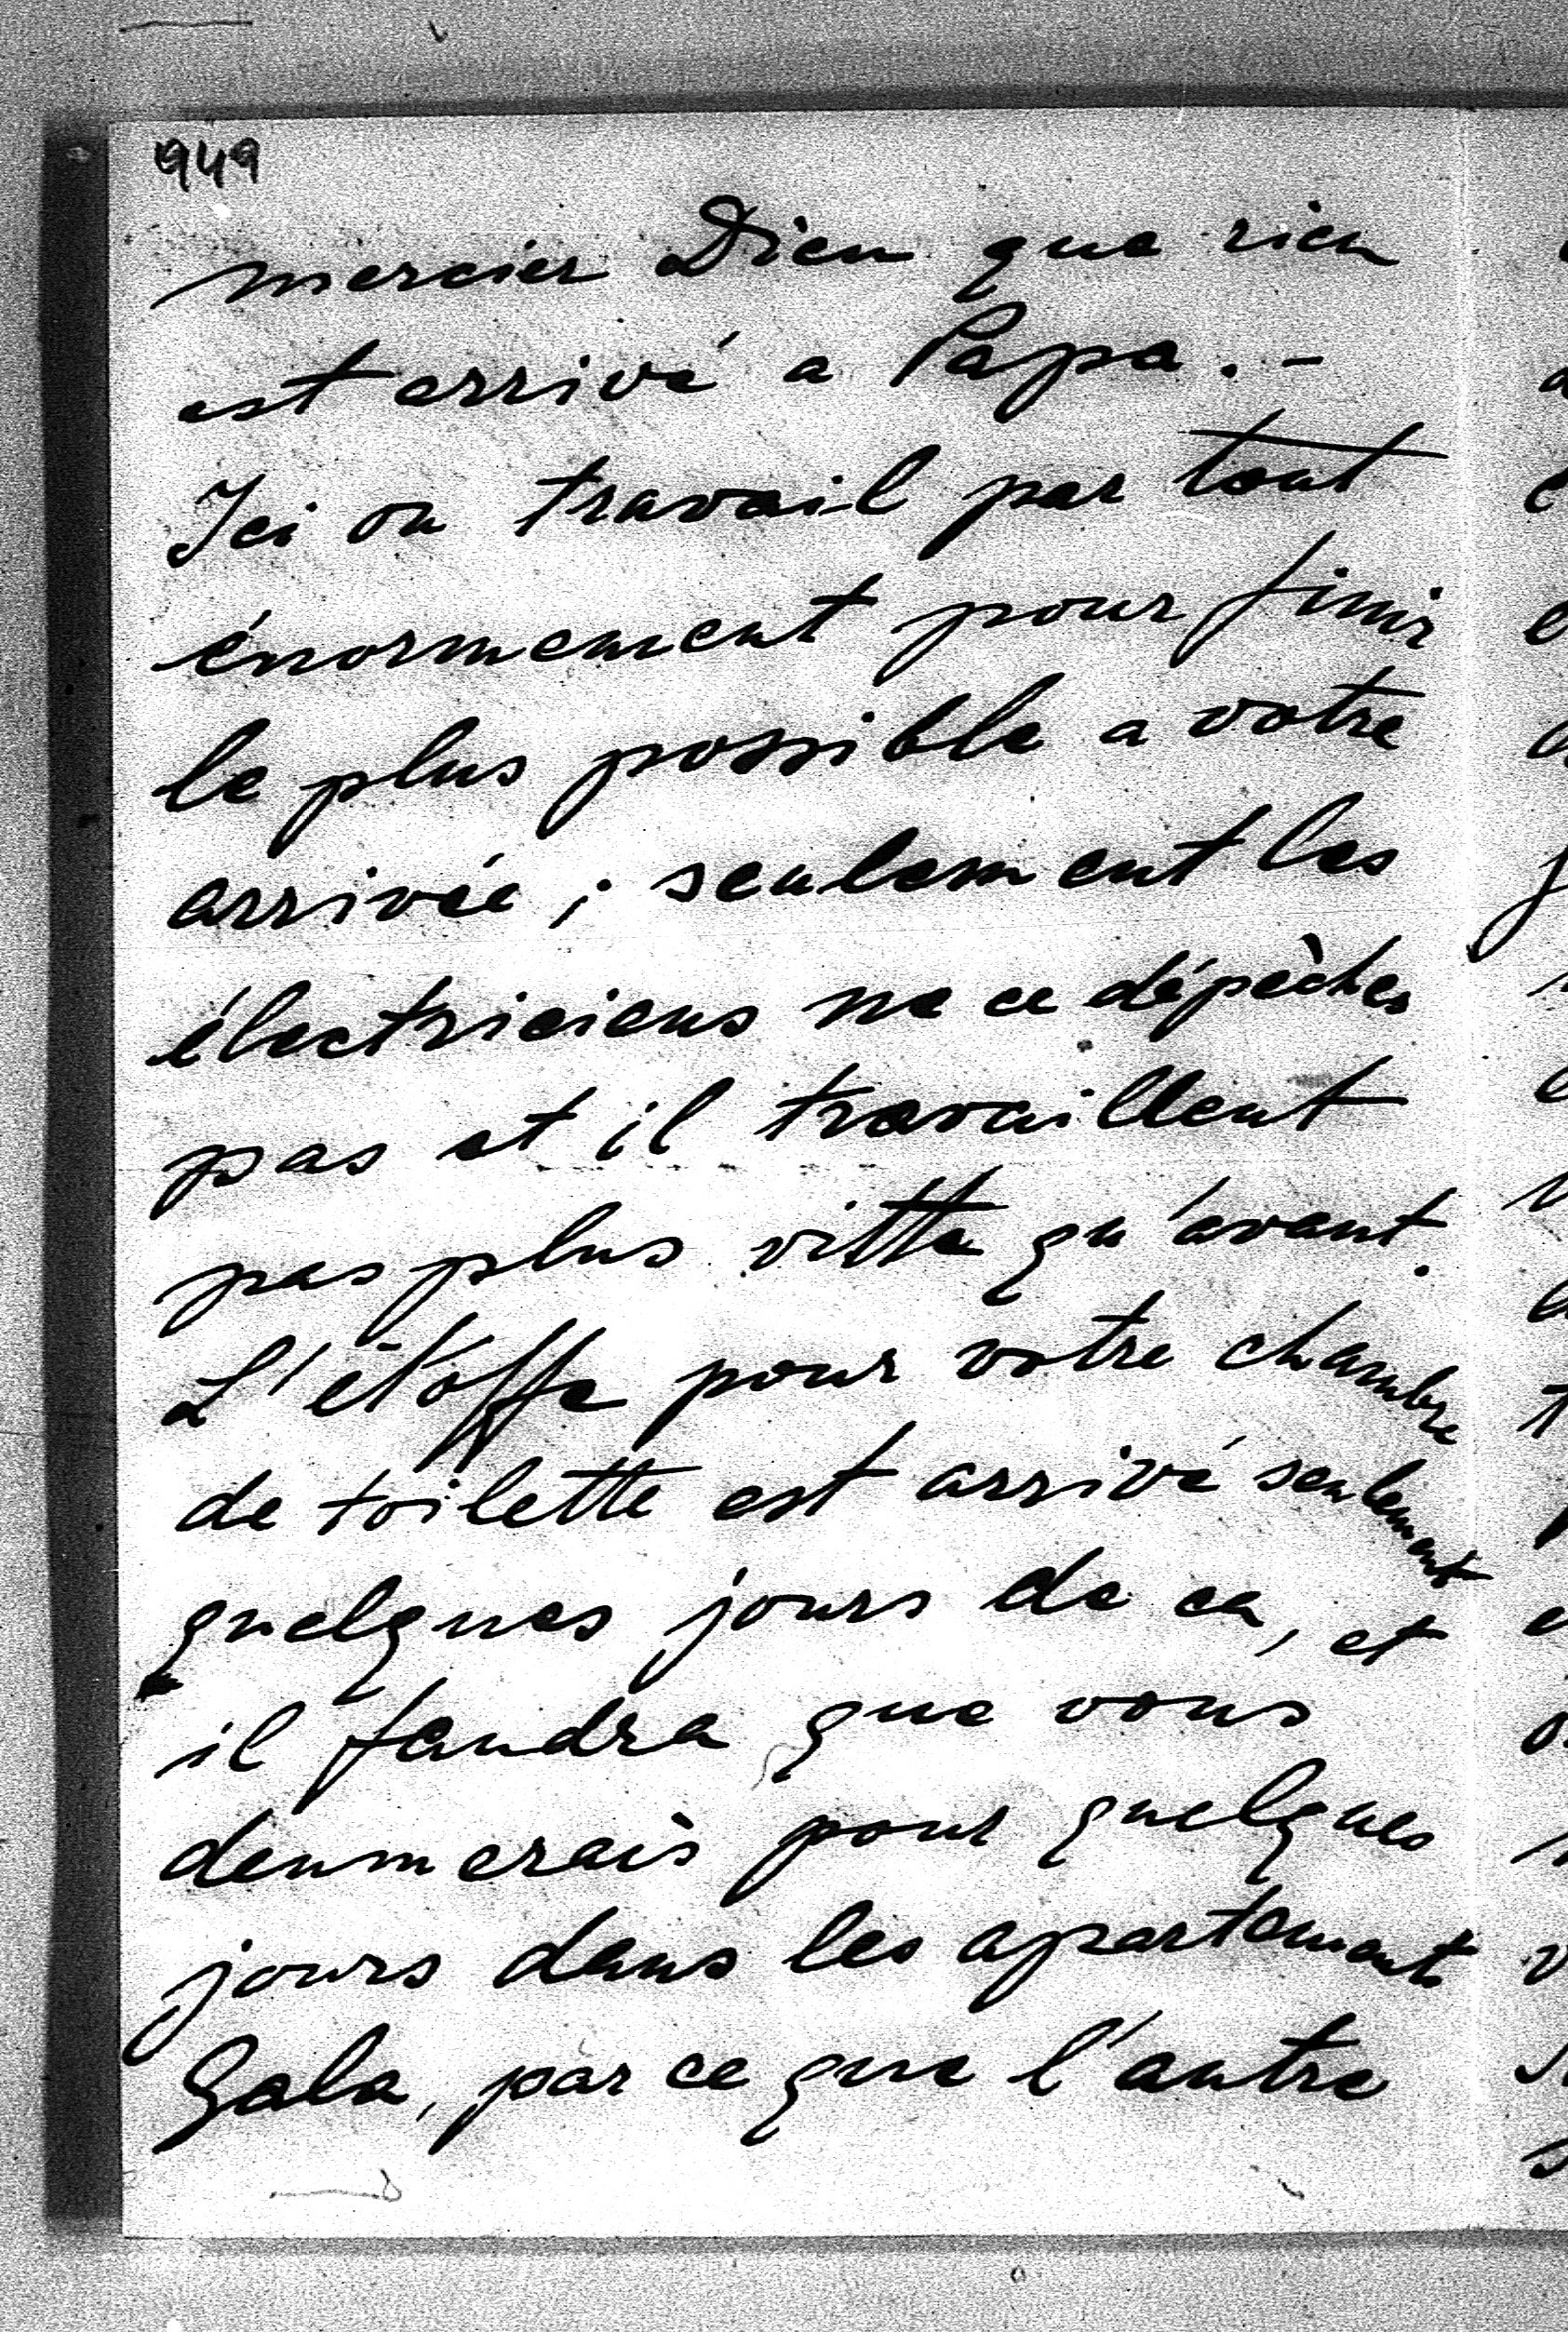 949
mercier Dieu que rien
est arrivé a Papa. -
Ici on travail par tout
énormement pour finir
le plus possible a votre
arrivée ; seulement les
électriciens ne ce dépèches
pas et il travaillent
pas plus vitte qu'avant.
L'étoffe pour votre chambre
de toilette est arrivé seulement
quelques jours de ca, et
il faudra que vous
deumerais pour quelques
jours dans les apartements
Gala, par ce que l'autre